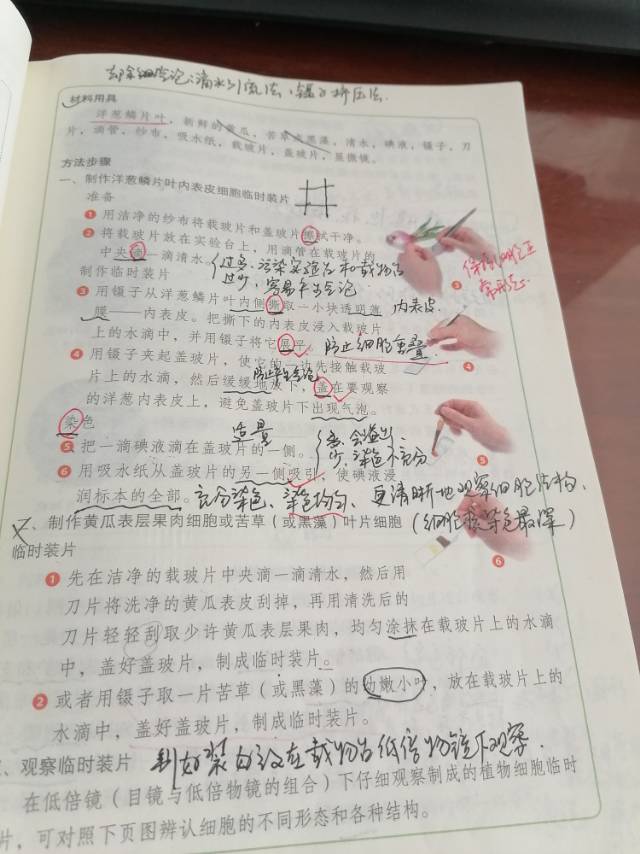 去除细胞气泡：滴水引流法、镊子挤压法.
材料用具
洋葱鳞片叶，新鲜的黄瓜，苦草或黑藻，清水，碘液，镊子，刀
片，滴管，纱布，吸水纸，载玻片，盖玻片，显微镜。
方法步骤
一、制作洋葱鳞片叶内表皮细胞临时装片
准备
1 用洁净的纱布将载玻片和盖玻片擦拭干净。
2 将载玻片放在实验台上，用滴管在载玻片的
中央滴一滴清水。
过多，污染实验台和载物台
过少，容易产生气泡
制作临时装片
3 用镊子从洋葱鳞片叶内侧撕取一小块透明薄
内表皮.
膜——内表皮。把撕下的内表皮浸入载玻片
上的水滴中，并用镊子将它展平。
防止细胞重叠
保持细胞正
常形态.
3
4 用镊子夹起盖玻片，使它的一边先接触载玻
防止产生气泡
片上的水滴，然后缓缓地放下，盖在要观察
的洋葱内表皮上，避免盖玻片下出现气泡。
4
染色
适量
5 把一滴碘液滴在盖玻片的一侧。
多，会溢出、
少，染色不充分
5
6 用吸水纸从盖玻片的另一侧吸引，使碘液浸
润标本的全部。
充分染色、染色均匀、更清晰地观察细胞结构.
(细胞核染色最深)
6
二、制作黄瓜表层果肉细胞或苦草（或黑藻）叶片细胞
临时装片
1 先在洁净的载玻片中央滴一滴清水，然后用
刀片将洗净的黄瓜表皮刮掉，再用清洗后的
刀片轻轻刮取少许黄瓜表层果肉，均匀涂抹在载玻片上的水滴
中，盖好盖玻片，制成临时装片。
2 或者用镊子取一片苦草（或黑藻）的幼嫩小叶，放在载玻片上的
水滴中，盖好盖玻片，制成临时装片。
、观察临时装片
制好装片放在载物台低倍物镜下观察.
在低倍镜（目镜与低倍物镜的组合）下仔细观察制成的植物细胞临时
片，可对照下页图辨认细胞的不同形态和各种结构。